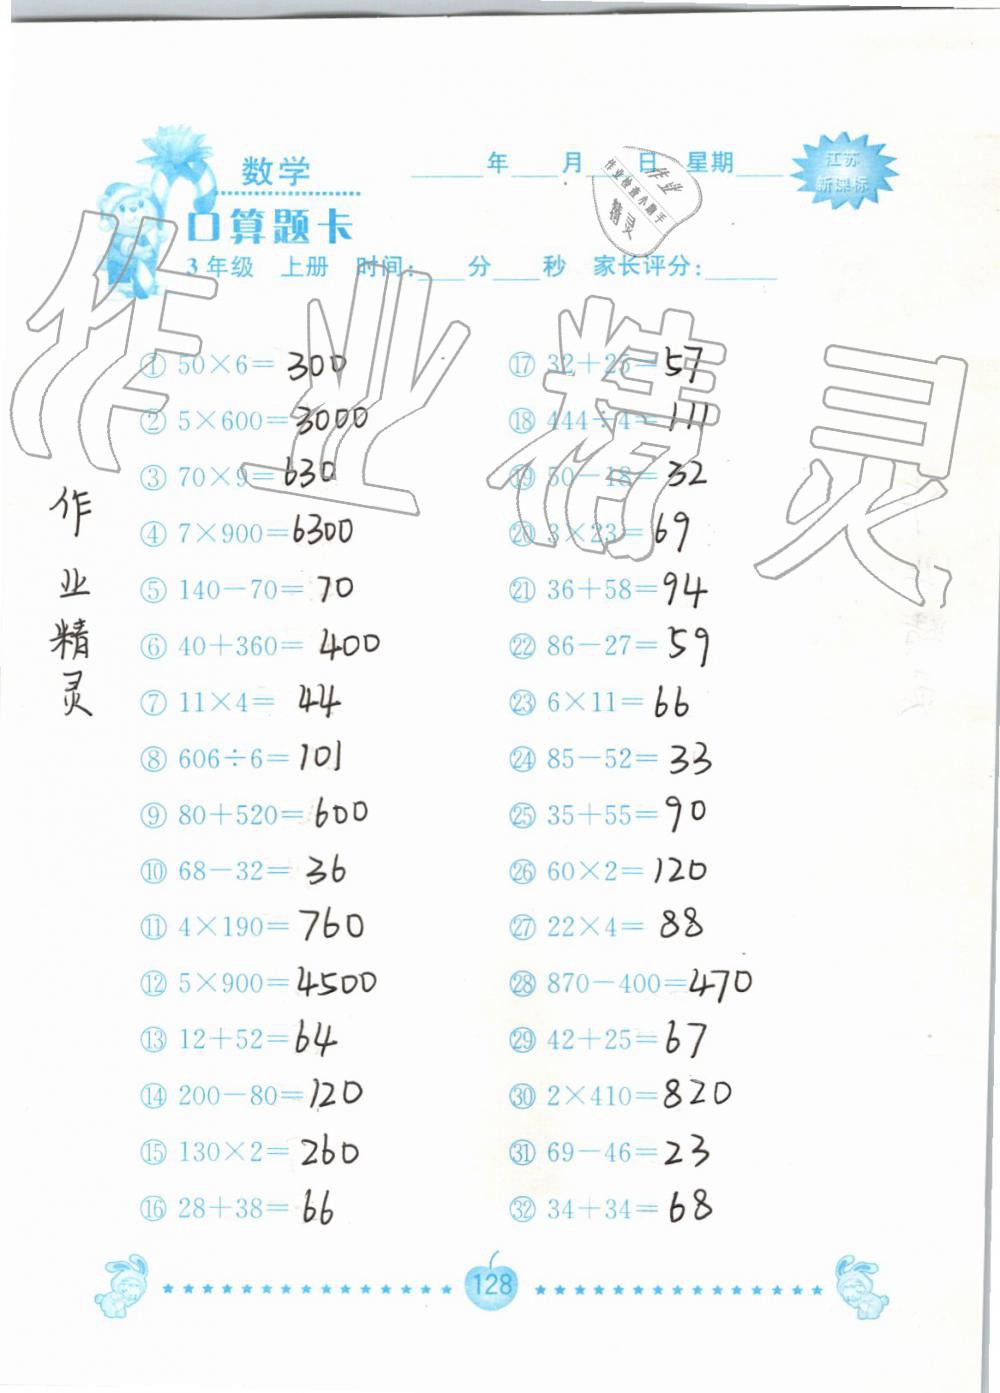 数学
____年____月____日 星期____
江苏
新课标
口算题卡
3年级 上册 时间:____分____秒 家长评分:______
作业
作业检查小助手
精灵
作业精灵
作业精灵
① 50×6=300
② 5×600=3000
③ 70×9=630
④ 7×900=6300
⑤ 140-70=70
⑥ 40+360=400
⑦ 11×4=44
⑧ 606÷6=101
⑨ 80+520=600
⑩ 68-32=36
⑪ 4×190=760
⑫ 5×900=4500
⑬ 12+52=64
⑭ 200-80=120
⑮ 130×2=260
⑯ 28+38=66
⑰ 32+25=57
⑱ 444÷4=111
⑲ 50-18=32
⑳ 3×23=69
㉑ 36+58=94
㉒ 86-27=59
㉓ 6×11=66
㉔ 85-52=33
㉕ 35+55=90
㉖ 60×2=120
㉗ 22×4=88
㉘ 870-400=470
㉙ 42+25=67
㉚ 2×410=820
㉛ 69-46=23
㉜ 34+34=68
128